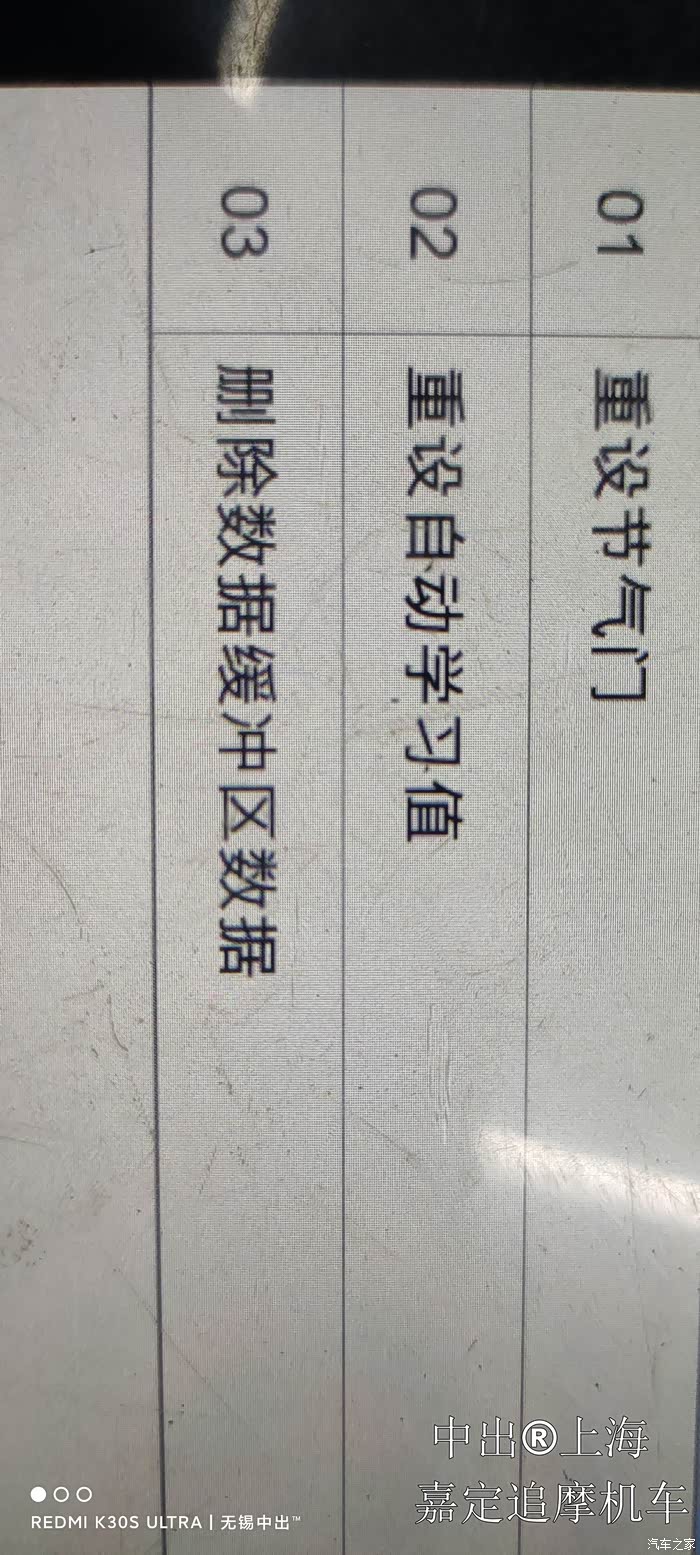 01 重设节气门
02 重设自动学习值
03 删除数据缓冲区数据
中出®上海
嘉定追摩机车
REDMI K30S ULTRA | 无锡中出™
汽车之家